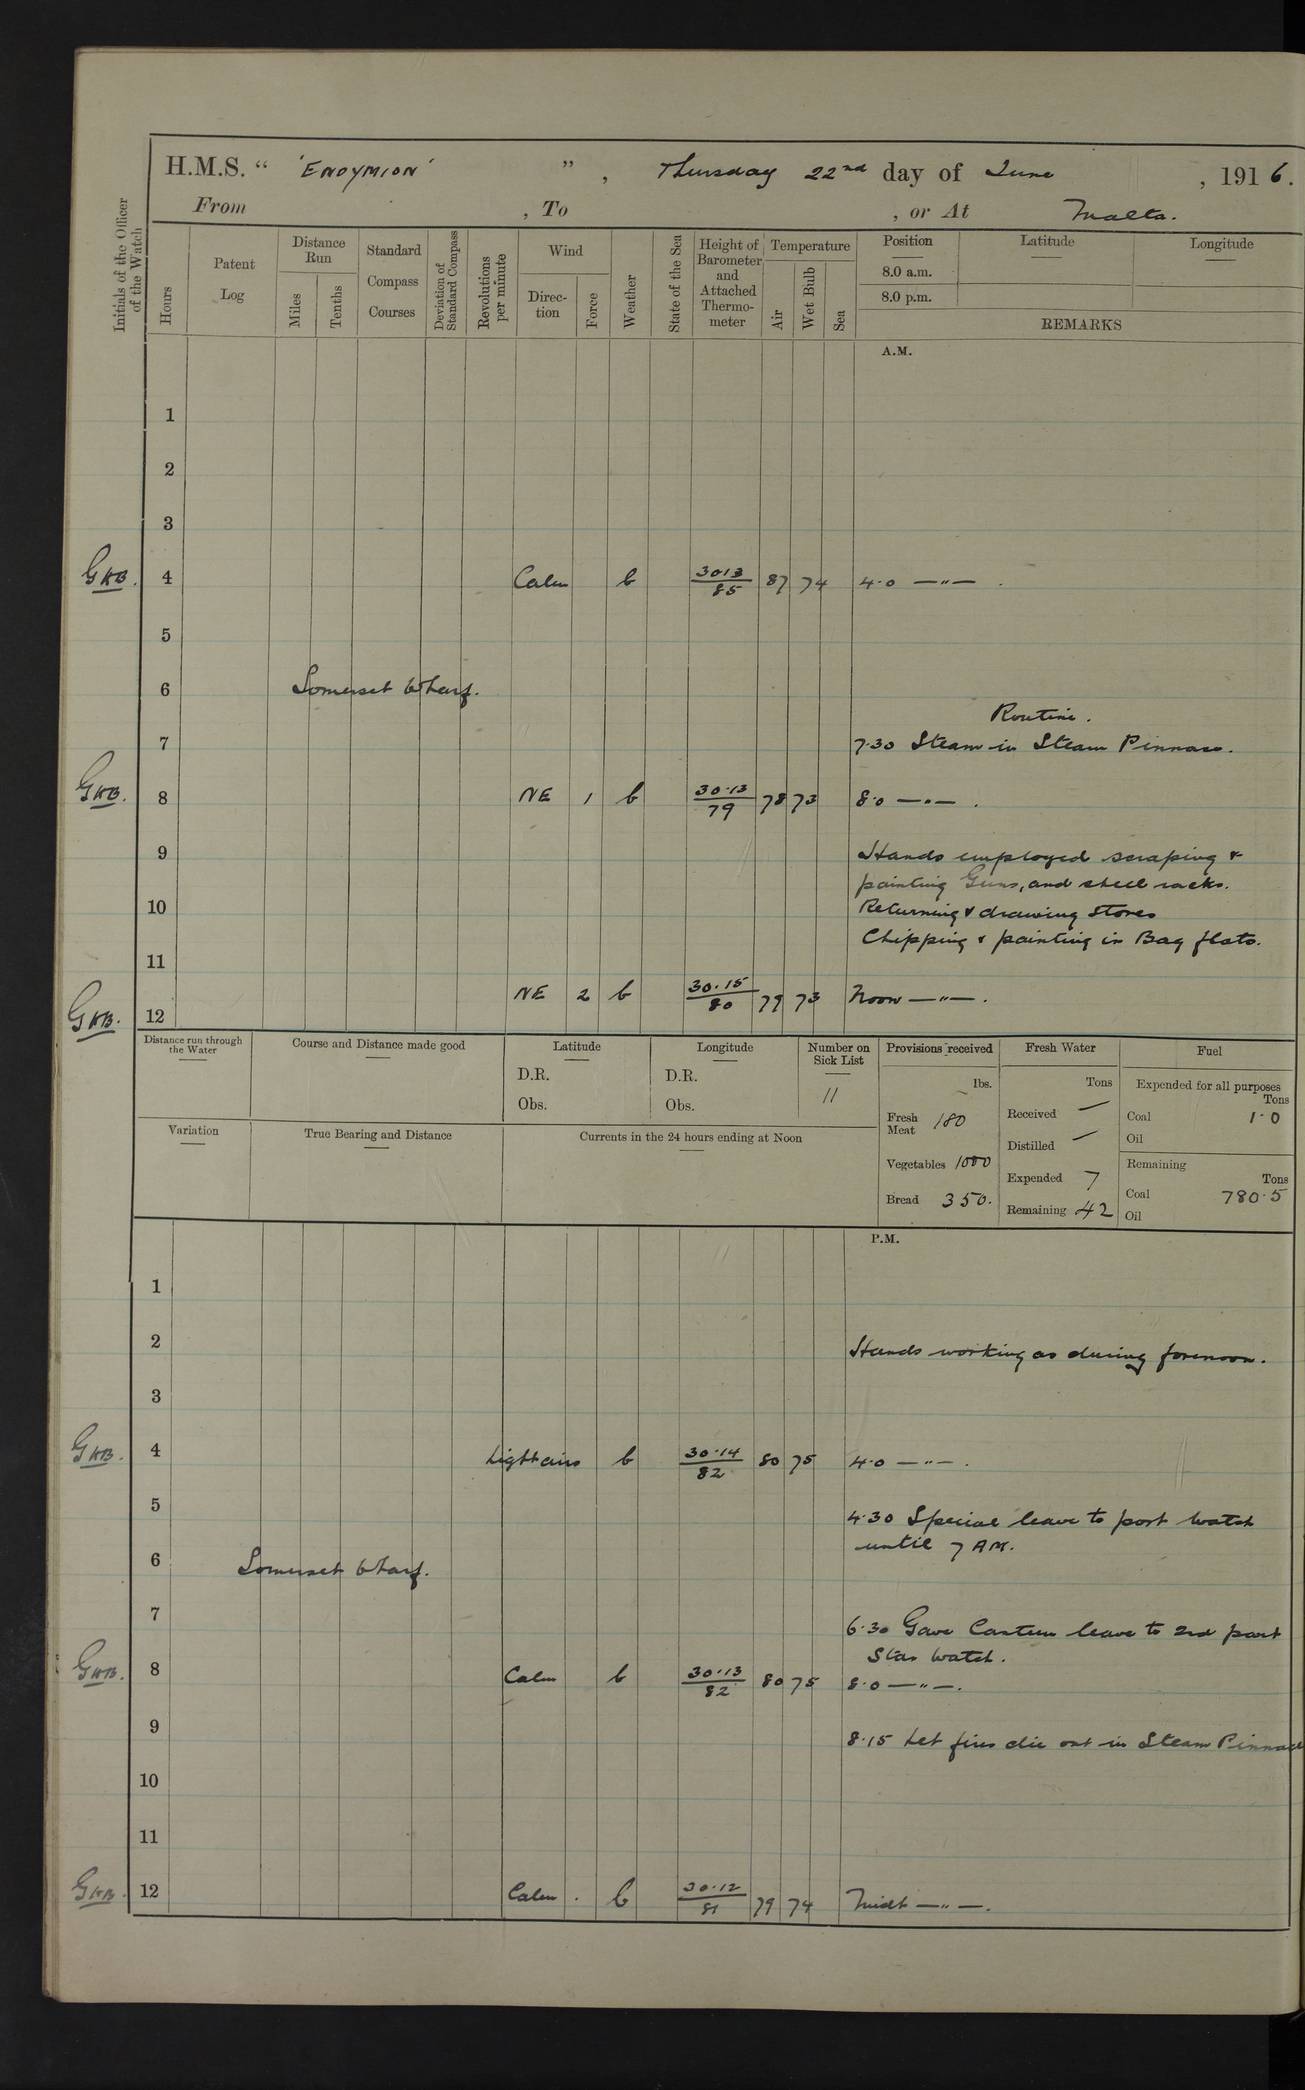 H.M.S. " 'ENDYMION' ", Thursday 22nd day of June, 1916.
From , To , or At Malta.
Initials of the Officer of the Watch
Hours
Patent Log
Distance Run
Miles
Tenths
Standard Compass Courses
Deviation of Standard Compass
Revolutions per minute
Wind
Direction
Force
Weather
State of the Sea
Height of Barometer and Attached Thermometer
Temperature
Air
Wet Bulb
Sea
Position Latitude Longitude
8.0 a.m.
8.0 p.m.
REMARKS
A.M.
1
2
3
GKB. 4 Calm b 30.13/85 87 74 4.0 —"— .
5
6 Somerset Wharf.
Routine.
7 7.30 Steam in Steam Pinnace.
GKB. 8 NE 1 b 30.13/79 78 73 8.0 —"— .
9 Hands employed scraping &
painting Guns, and shell racks.
10 Returning & drawing stores
Chipping & painting in Bag flats.
11
GKB. 12 NE 2 b 30.15/80 79 73 Noon —"— .
Distance run through the Water
Course and Distance made good
Latitude
D.R.
Obs.
Longitude
D.R.
Obs.
Number on Sick List
11
Provisions received
lbs.
Fresh Meat 180
Vegetables 1000
Bread 350.
Fresh Water
Tons
Received —
Distilled —
Expended 7
Remaining 42
Fuel
Expended for all purposes
Tons
Coal 1.0
Oil
Remaining
Tons
Coal 780.5
Oil
Variation
True Bearing and Distance
Currents in the 24 hours ending at Noon
P.M.
1
2 Hands working as during forenoon.
3
GKB. 4 Light airs b 30.14/82 80 75 4.0 —"— .
5 4.30 Special leave to port watch
until 7 AM.
6 Somerset Wharf.
7 6.30 Gave Canteen leave to 2nd part
Star watch.
GKB. 8 Calm b 30.13/82 80 75 8.0 —"— .
9 8.15 Let fires die out in Steam Pinnace
10
11
GKB. 12 Calm . b 30.12/81 79 74 Midt —"— .